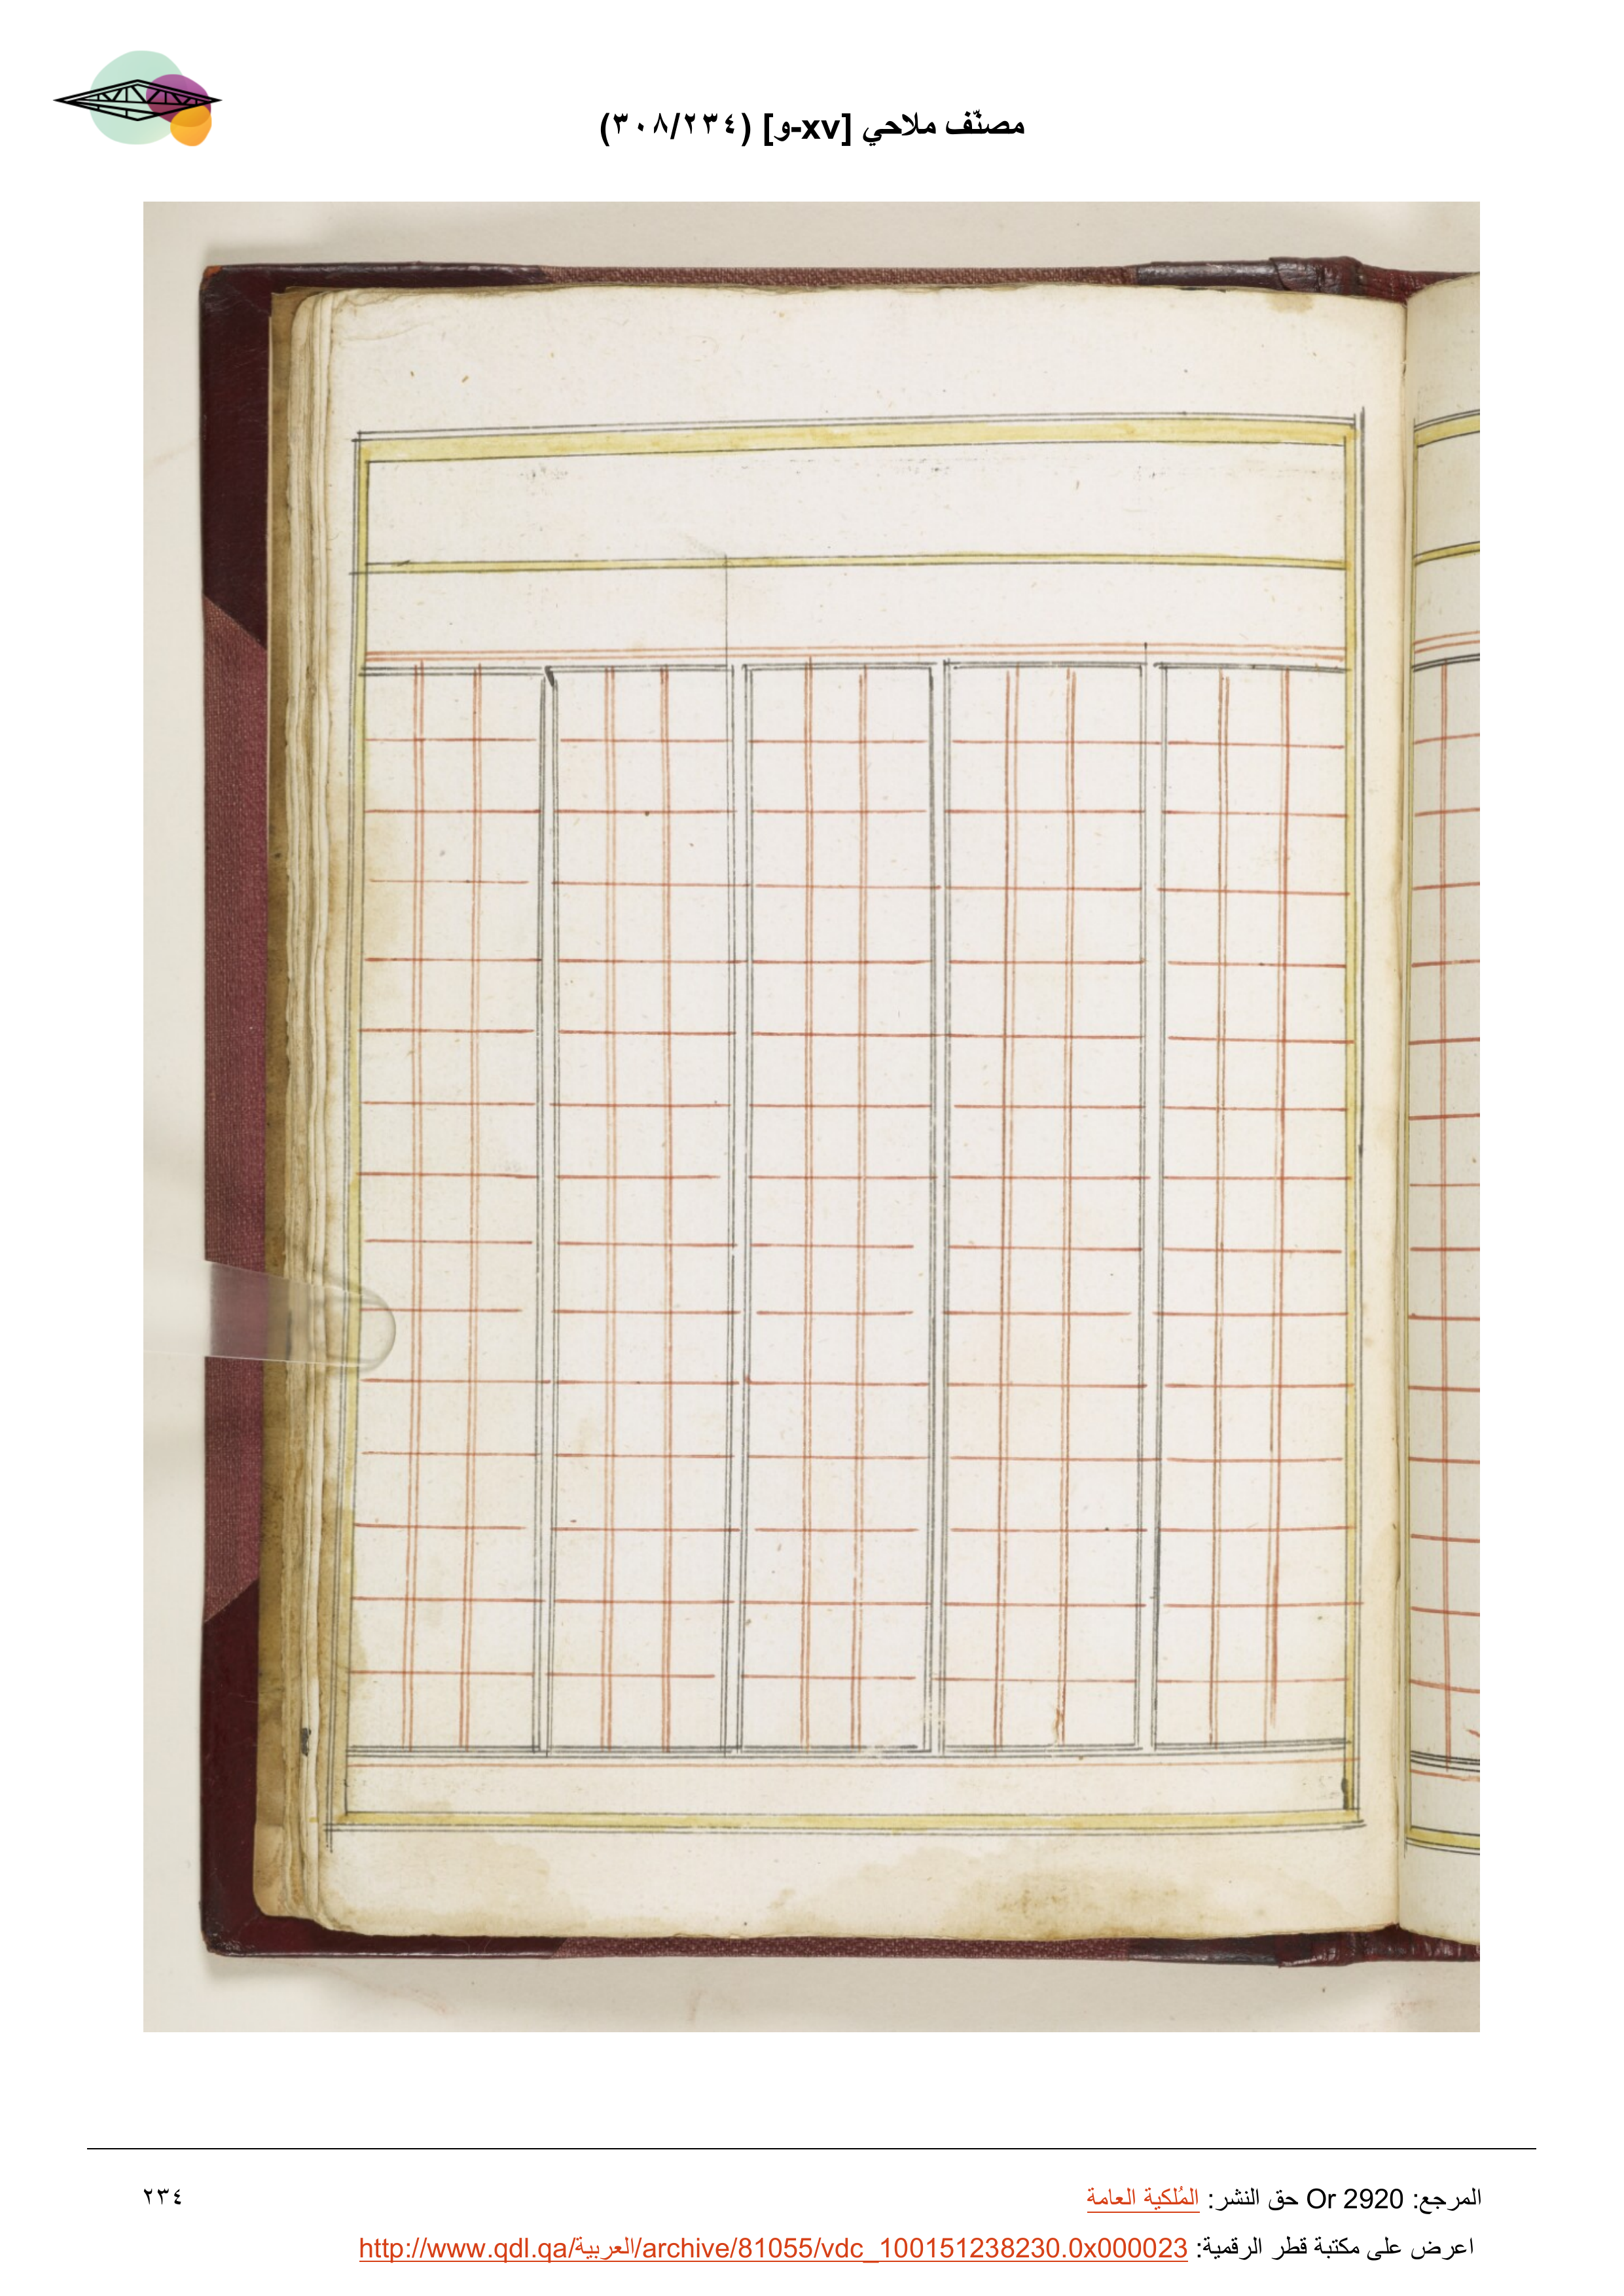 مصنّف ملاحي [xv-و] (٣٠٨/٢٣٤)
المرجع: Or 2920 حق النشر: المُلكية العامة
٢٣٤
اعرض على مكتبة قطر الرقمية: http://www.qdl.qa/العربية/archive/81055/vdc_100151238230.0x000023